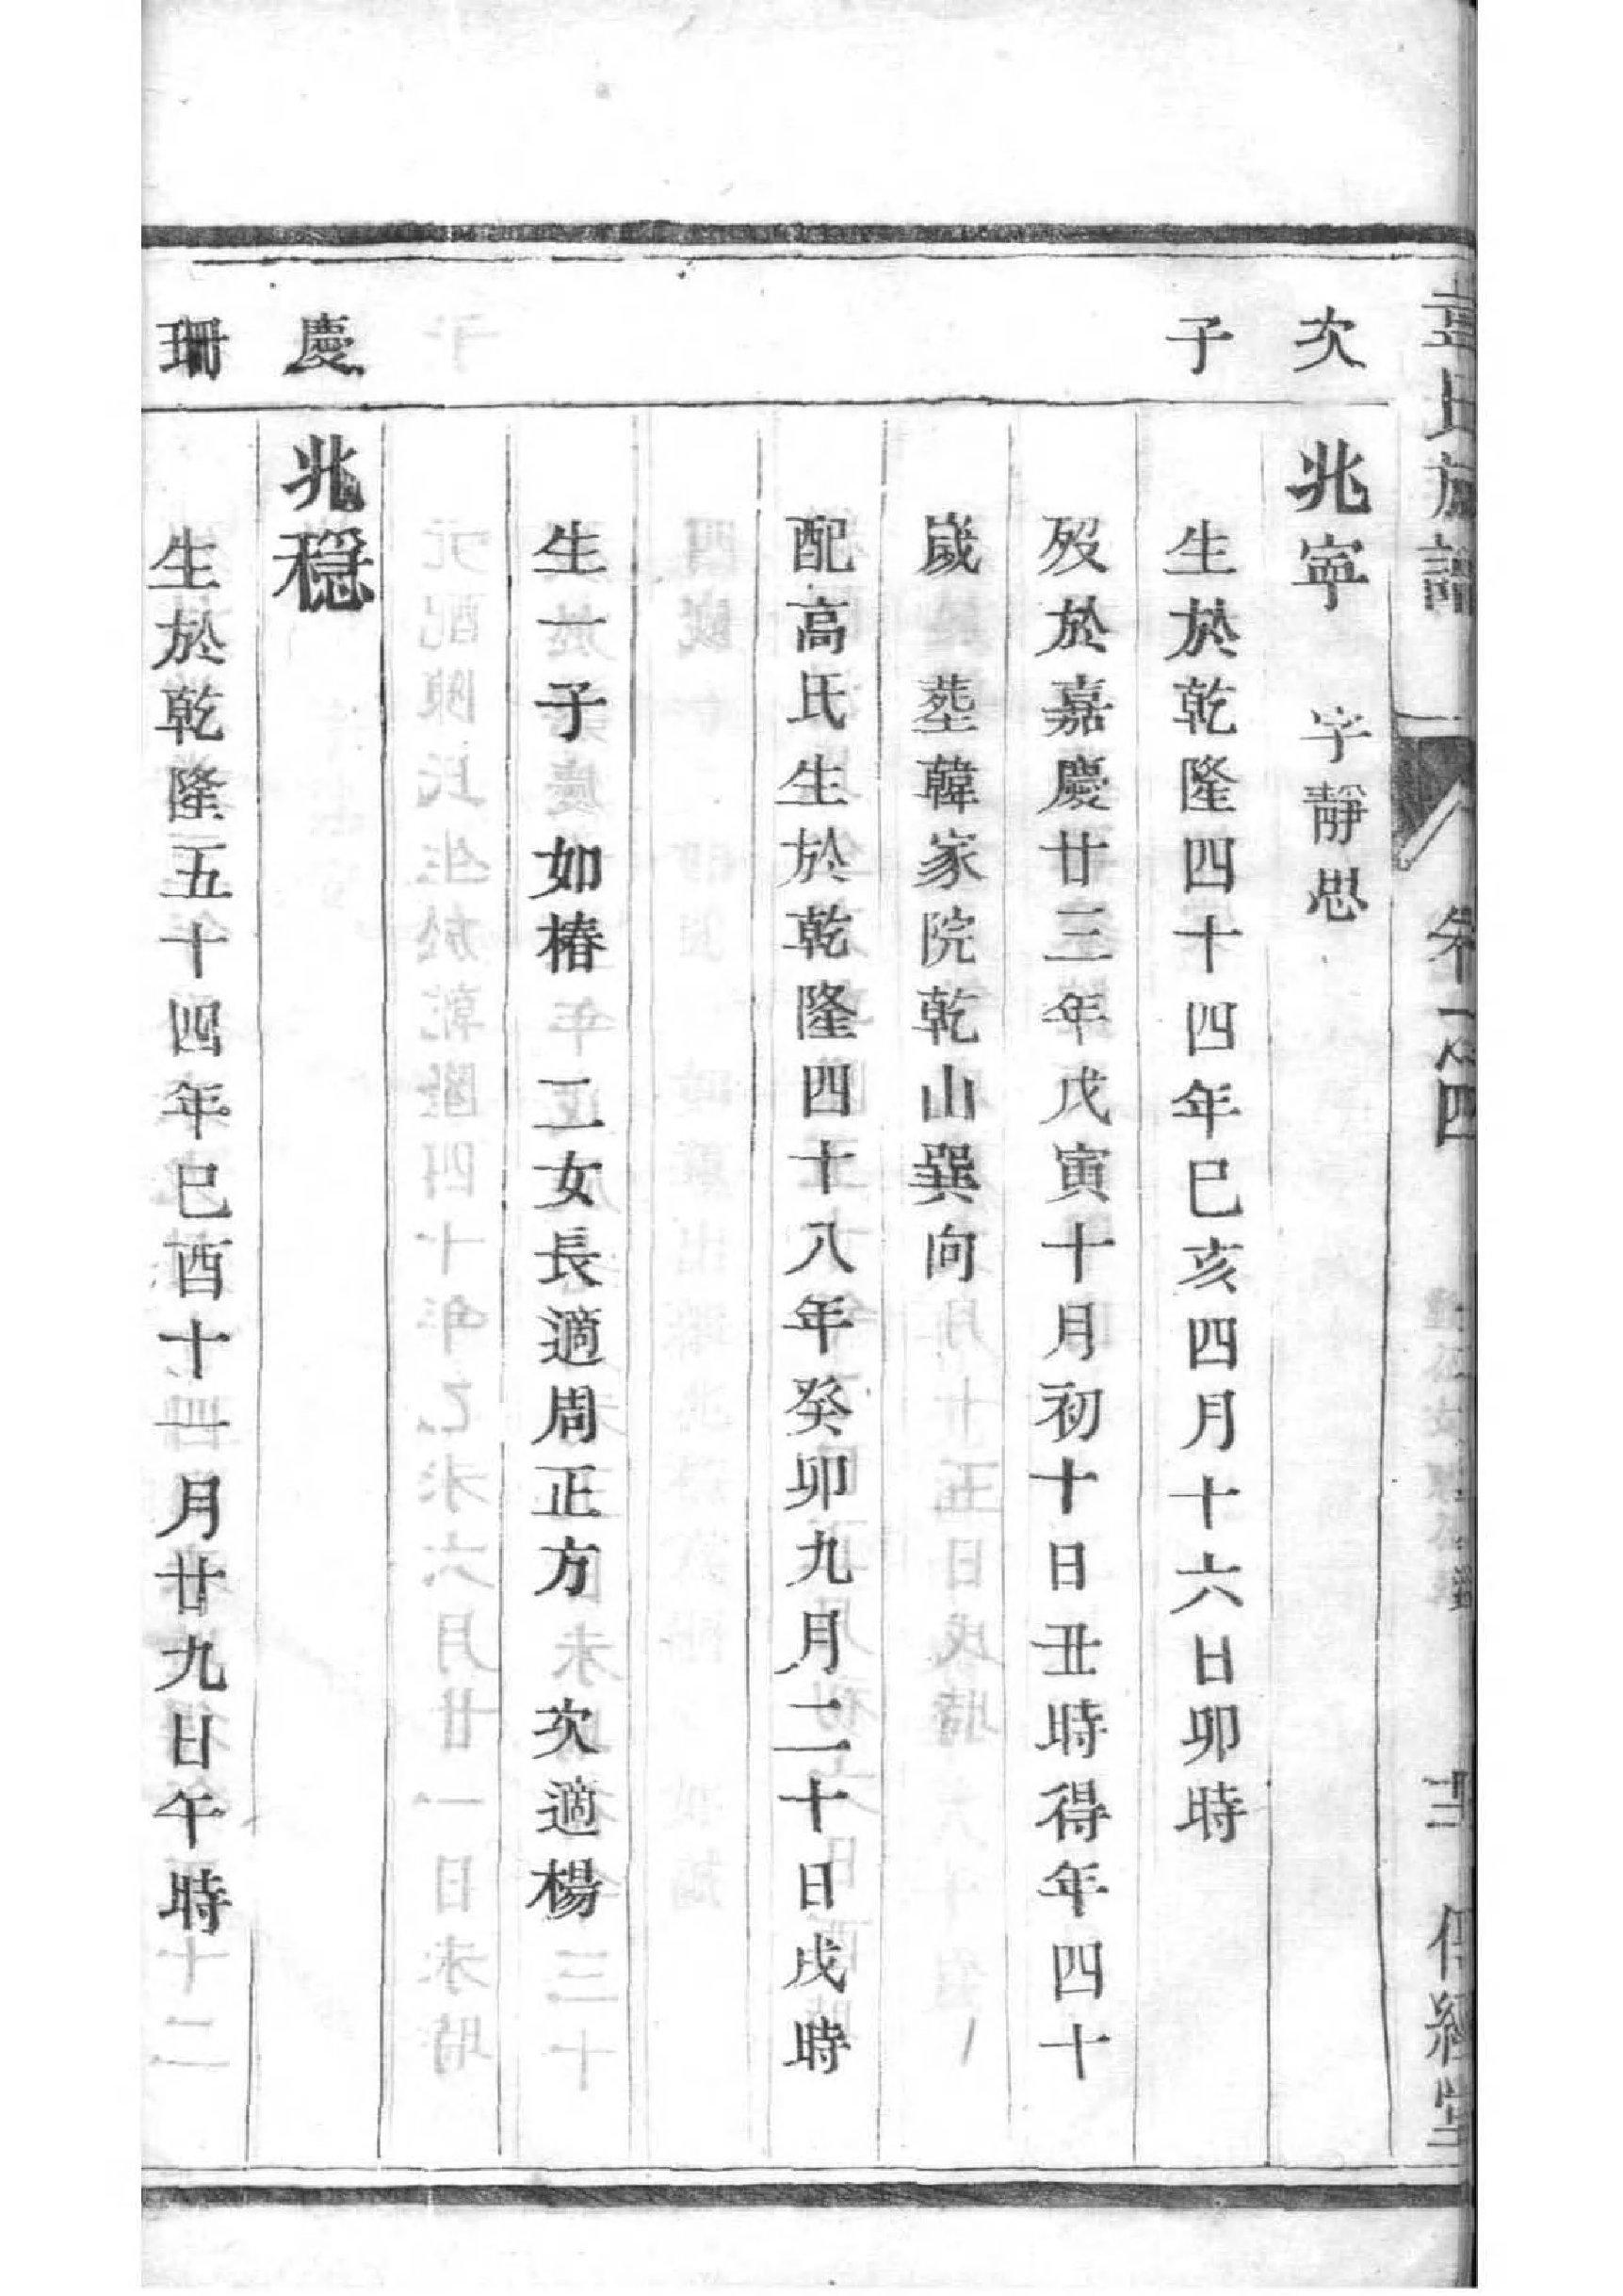 氏族譜
卷一之四
經堂
次子
兆寧 字靜思
生於乾隆四十四年巳亥四月十六日卯時
歿於嘉慶廿三年戊寅十月初十日丑時得年四十
嵗塟韓家院乾山巽向
配高氏生於乾隆四十八年癸卯九月二十日戌時
生一子 如椿 二女長適周正方 次適楊
慶珊
兆穩
生於乾隆五十四年巳酉十一月廿九日午時